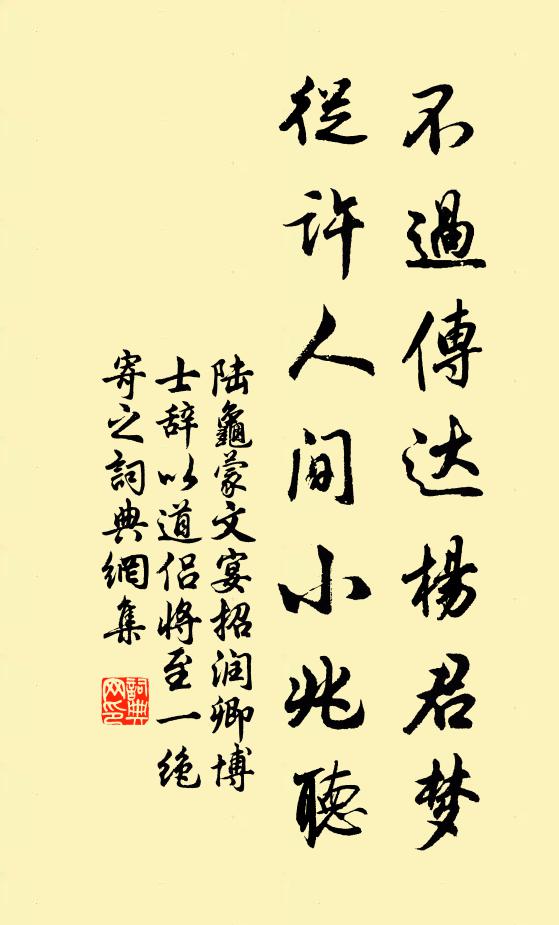 不過傳达楊君梦
從许人间小兆聽
陆龜蒙文宴招润卿博
士辞以道侣將至一绝
寄之詞典網集
詞典
网印